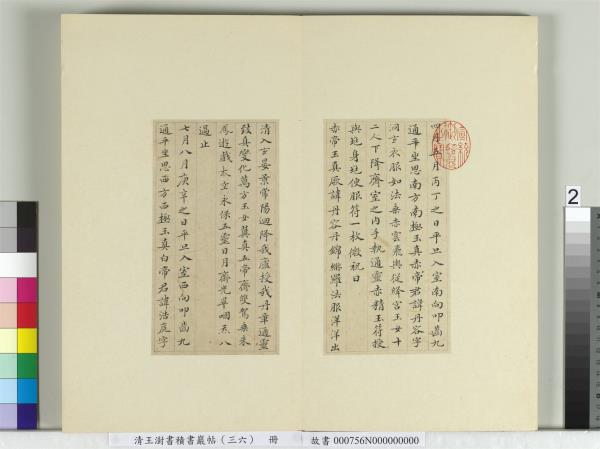 四月五月丙丁之日平旦入室南向叩齒九
通平坐思南方南極玉真赤帝君諱丹容字
洞玄衣服如法乘赤雲飛輿從絳宮玉女十
二人下降齋室之內手執通靈赤精玉符授
與兆身兆便服符一枚微祝曰
赤帝玉真厥諱丹容丹錦緋羅法服洋洋出
清入玄晏景常陽迴降我廬授我丹章通靈
致真變化萬方玉女翼真五帝齊雙駕乘朱
鳳遊戲太空永保五靈日月齊光畢咽炁八
過止
七月八月庚辛之日平旦入室西向叩齒九
通平坐思西方西極玉真白帝君諱浩庭字
2
清王澍書積書巖帖（三六） 冊 故書 000756N000000000